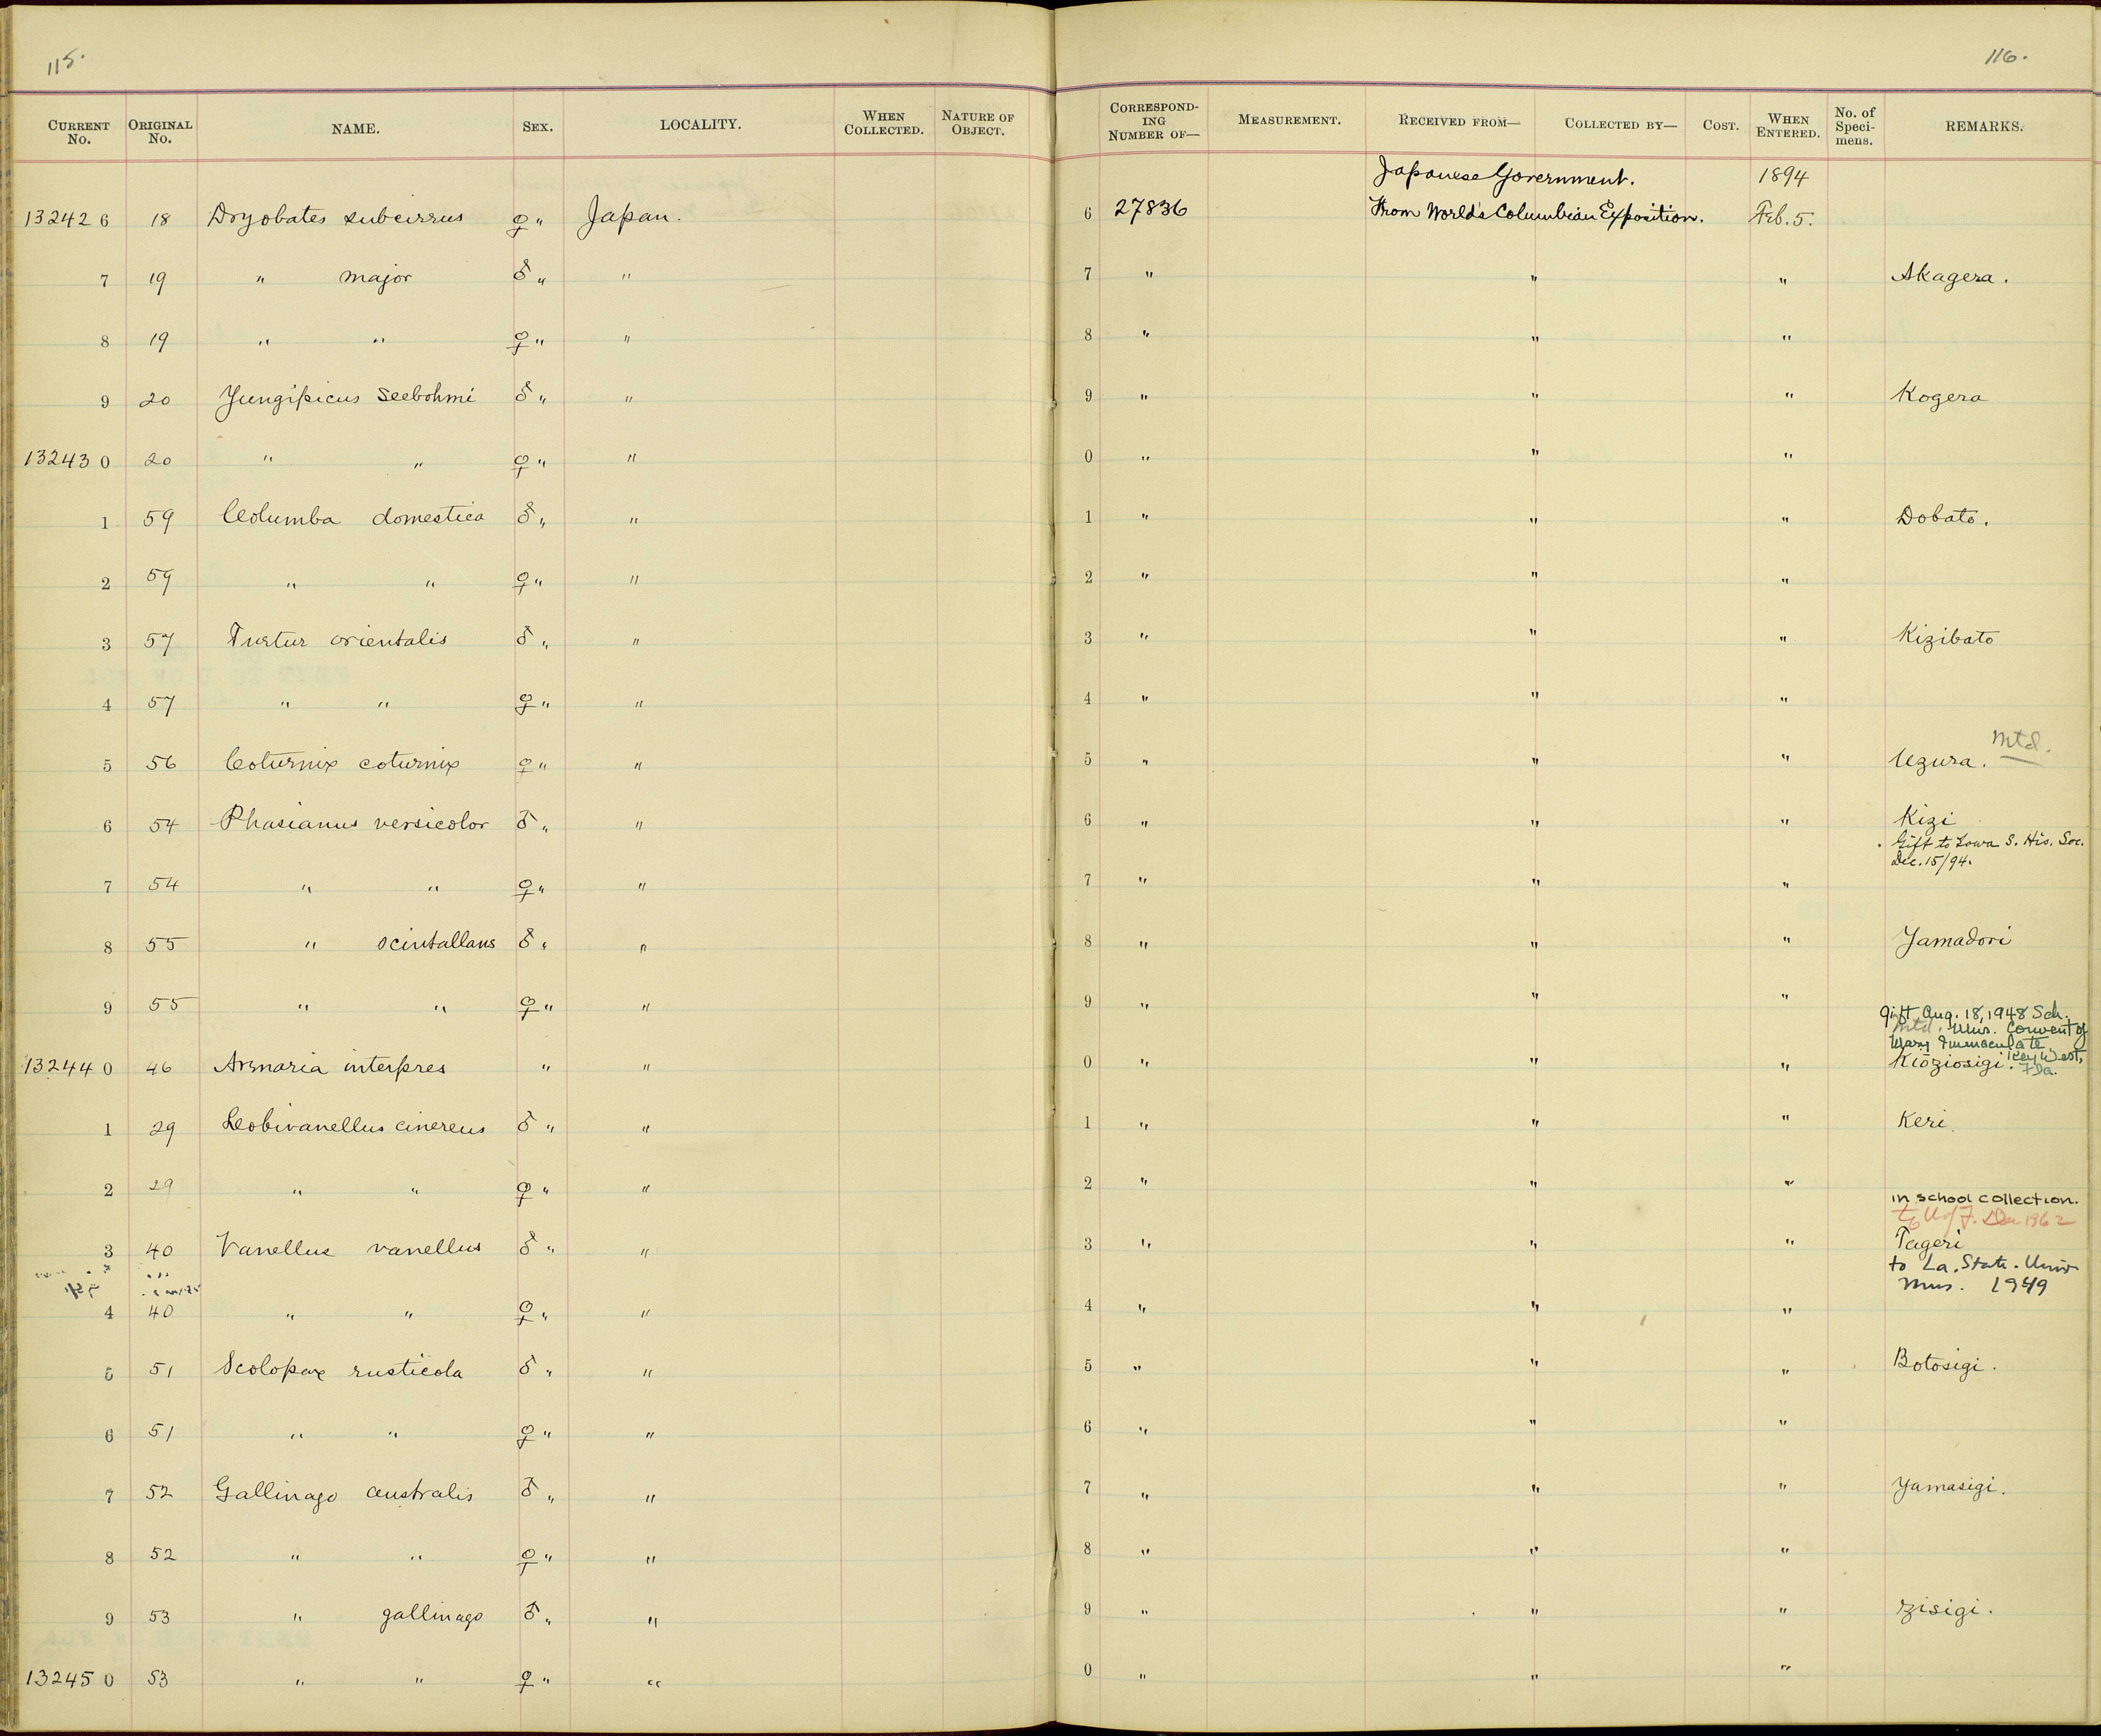 115.
116.
CURRENT No. ORIGINAL No. NAME. SEX. LOCALITY. WHEN COLLECTED. NATURE OF OBJECT. CORRESPONDING NUMBER OF— MEASUREMENT. RECEIVED FROM— COLLECTED BY— COST. WHEN ENTERED. No. of Specimens. REMARKS.
Japanese Government. 1894
13242 6 18 Dryobates subcirrus ♀ " Japan. 6 27836 From World's Columbian Exposition. Feb. 5.
7 19 " major ♂ " " 7 " " " Akagera.
8 19 " " ♀ " " 8 " " "
9 20 Yungipicus seebohmi ♂ " " 9 " " " Kogera
13243 0 20 " " ♀ " " 0 " " "
1 59 Columba domestica ♂ " " 1 " " " Dobato.
2 59 " " ♀ " " 2 " " "
3 57 Turtur orientalis ♂ " " 3 " " " Kizibato
4 57 " " ♀ " " 4 " " "
5 56 Coturnix coturnix ♀ " " 5 " " " Uzura. Mtd.
6 54 Phasianus versicolor ♂ " " 6 " " " Kizi
Gift to Iowa S. His. Soc.
Dec. 15/94.
7 54 " " ♀ " " 7 " " "
8 55 " scintallans ♂ " " 8 " " " Yamadori
9 55 " " ♀ " " 9 " " "
gift Aug. 18, 1948 Sch.
Mtd. Mus. Convent of
Mary Immaculate
Key West,
Fla.
13244 0 46 Arenaria interpres " " 0 " " " Kiōziosigi.
1 29 Lobivanellus cinereus ♂ " " 1 " " " Keri.
2 29 " " ♀ " " 2 " " "
in school collection.
to U of F. Dec 1962
3 40 Vanellus vanellus ♂ " " 3 " " " Tageri
to La. State. Univ
Mus. 1949
4 40 " " ♀ " " 4 " " "
5 51 Scolopax rusticola ♂ " " 5 " " " Botosigi.
6 51 " " ♀ " " 6 " " "
7 52 Gallinago australis ♂ " " 7 " " " Yamasigi.
8 52 " " ♀ " " 8 " " "
9 53 " gallinago ♂ " " 9 " " " Zisigi.
13245 0 53 " " ♀ " " 0 " " "